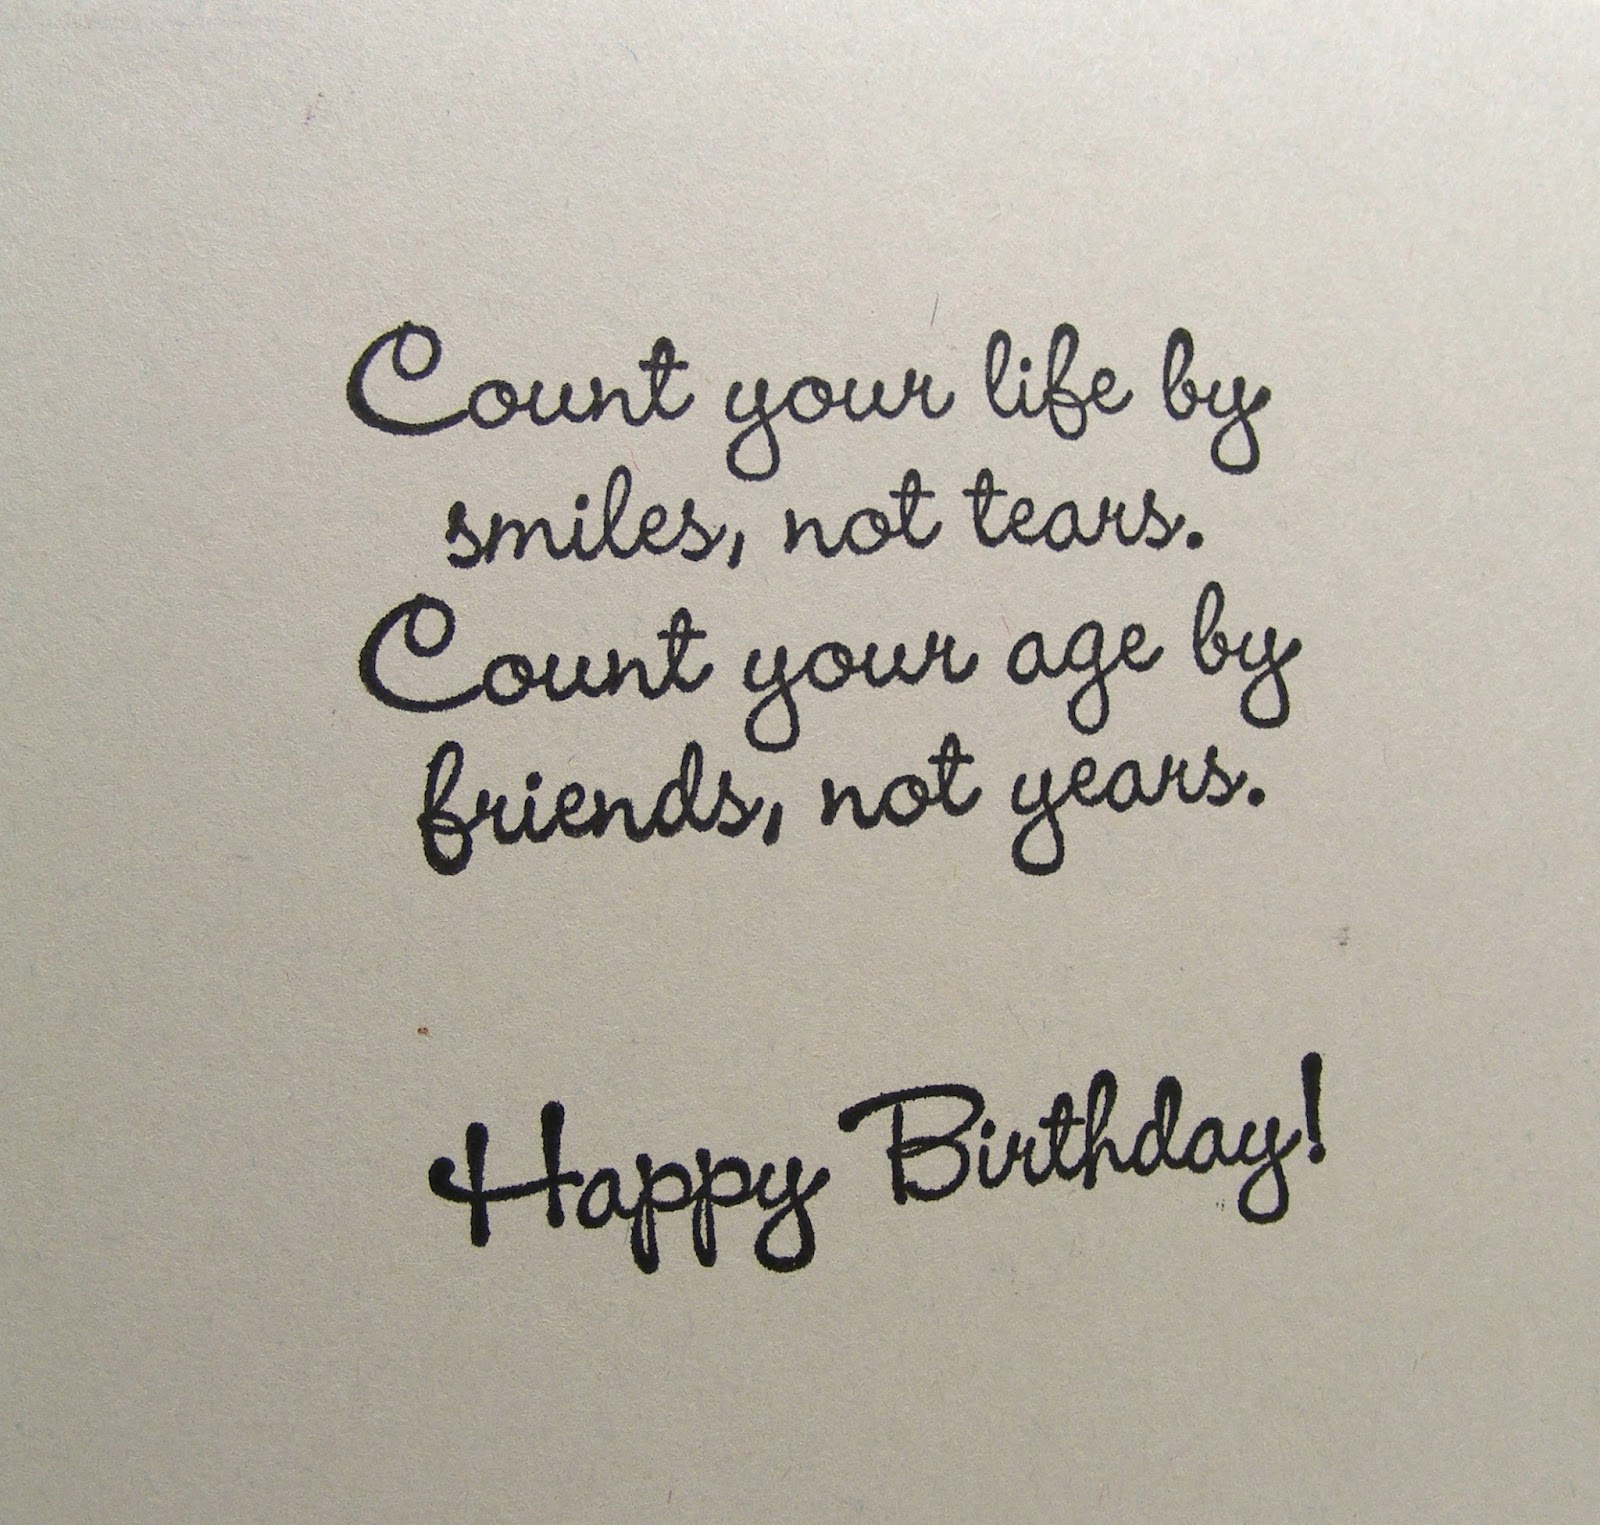 Count your life by
smiles, not tears.
Count your age by
friends, not years.
Happy Birthday!